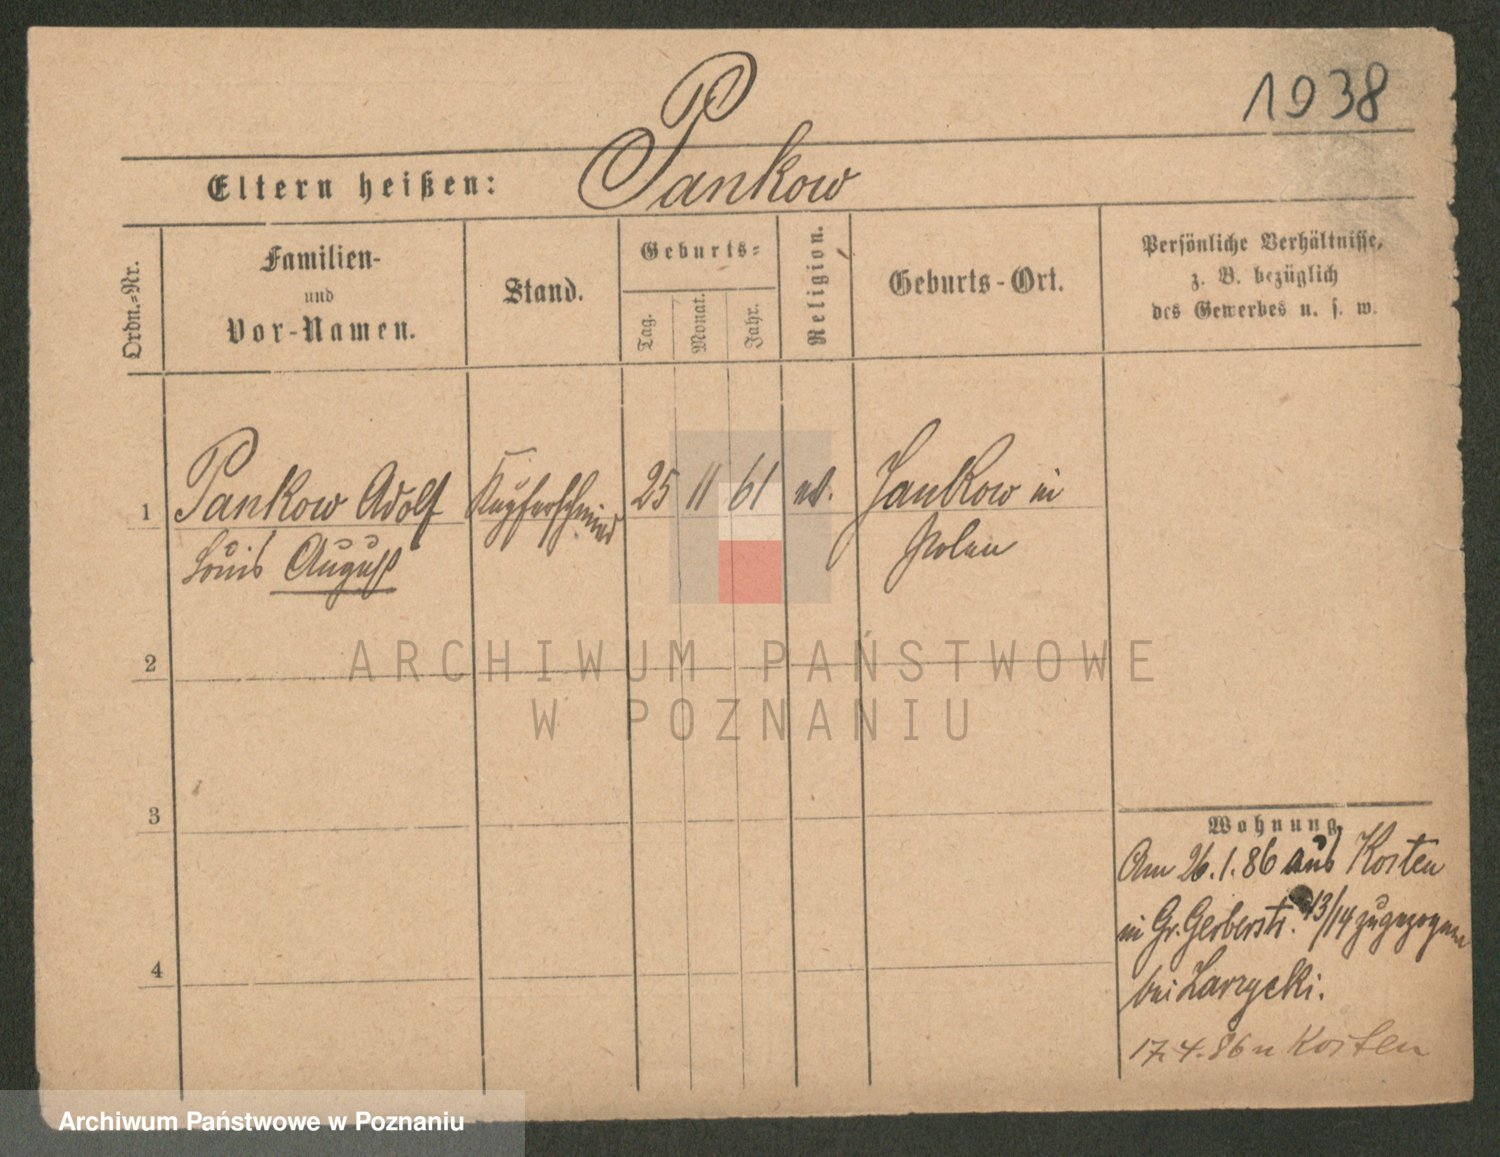 1938
Pankow
Eltern heißen:
Ordn.-Nr.
Familien-
und
Vor-Namen.
Stand.
Geburts-
Tag.
Monat.
Jahr.
Religion.
Geburts-Ort.
Persönliche Verhältnisse,
z. B. bezüglich
des Gewerbes u. s. w.
1
Pankow Adolf
Louis August
Kupferschmied
25
11
61
ev.
Jankow in
Polen
2
ARCHIWUM PAŃSTWOWE
W POZNANIU
3
4
Wohnung.
Am 26.1.86 aus Kosten
in Gr. Gerberstr. 13/14 zugezogen
bei
17.4.86 n Kosten
Archiwum Państwowe w Poznaniu